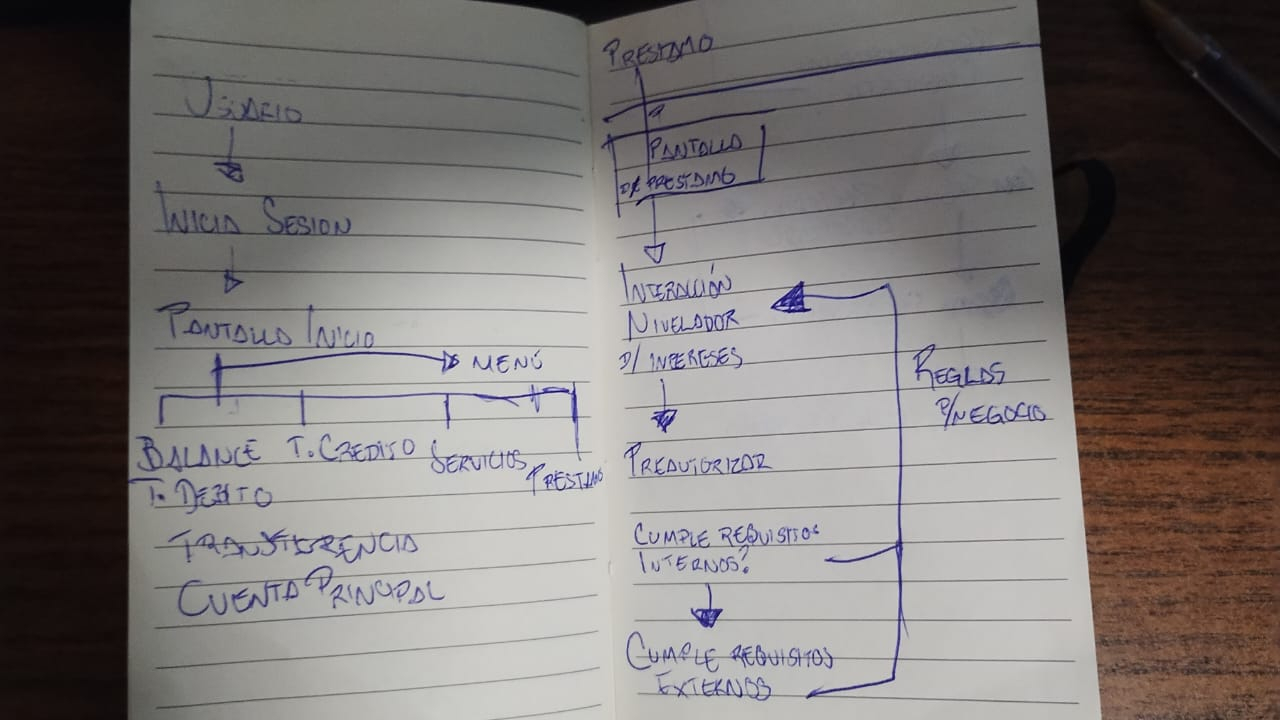 USUARIO
INICIA SESION
PANTALLA INICIO
MENÚ
BALANCE T. CREDITO SERVICIOS PRESTAMO
T. DEBITO
TRANSFERENCIA
CUENTA PRINCIPAL
PRESTAMO
PANTALLA
D/ PRESTAMO
INTERACCIÓN
NIVELADOR
D/ INTERESES
PREAUTORIZAR
CUMPLE REQUISITOS
INTERNOS?
CUMPLE REQUISITOS
EXTERNOS
REGLAS
P/NEGOCIO